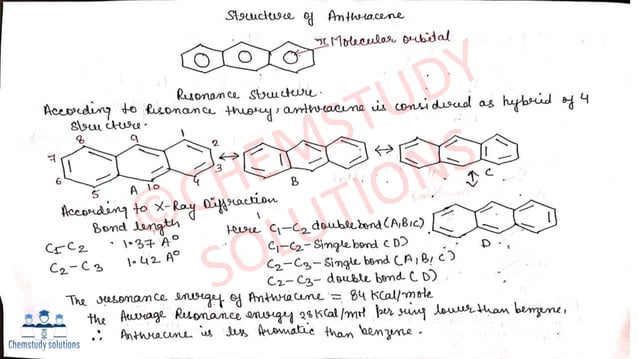 Structure of Anthracene
π Molecular orbital
Resonance Structure.
According to Resonance theory, anthracene is considered as hybrid of 4
Structure.
8 9 1 2
7 6 5 A 10 4 3
B
C
D
According to X-Ray Diffraction
Bond length
C1-C2 1.37 A°
C2-C3 1.42 A°
Here C1-C2 double bond (A,B,C)
C1-C2-Single bond (D)
C2-C3-Single bond (A,B,C)
C2-C3-double bond (D)
The resonance energy of Anthracene = 84 KCal/mole
the Average Resonance energy 28 KCal/mol per ring lower than benzene,
∴ Anthracene is less Aromatic than benzene.
©CHEMSTUDY
SOLUTIONS
Chemstudy solutions